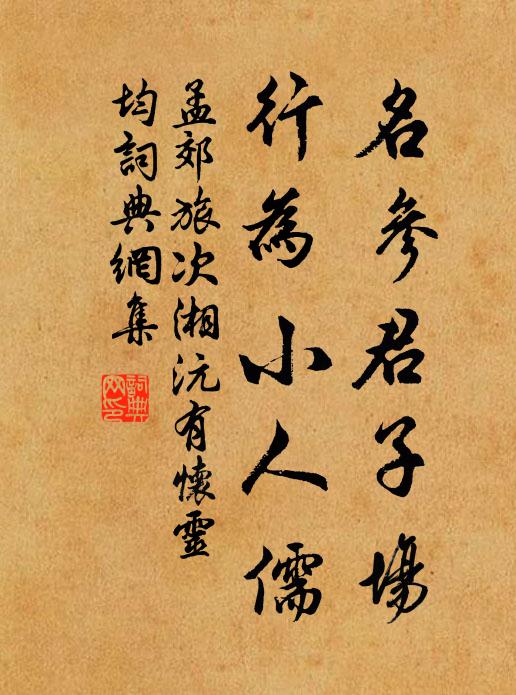 名參君子場
行為小人儒
孟郊旅次湘沅有懷靈
均詞典網集
詞典
网印